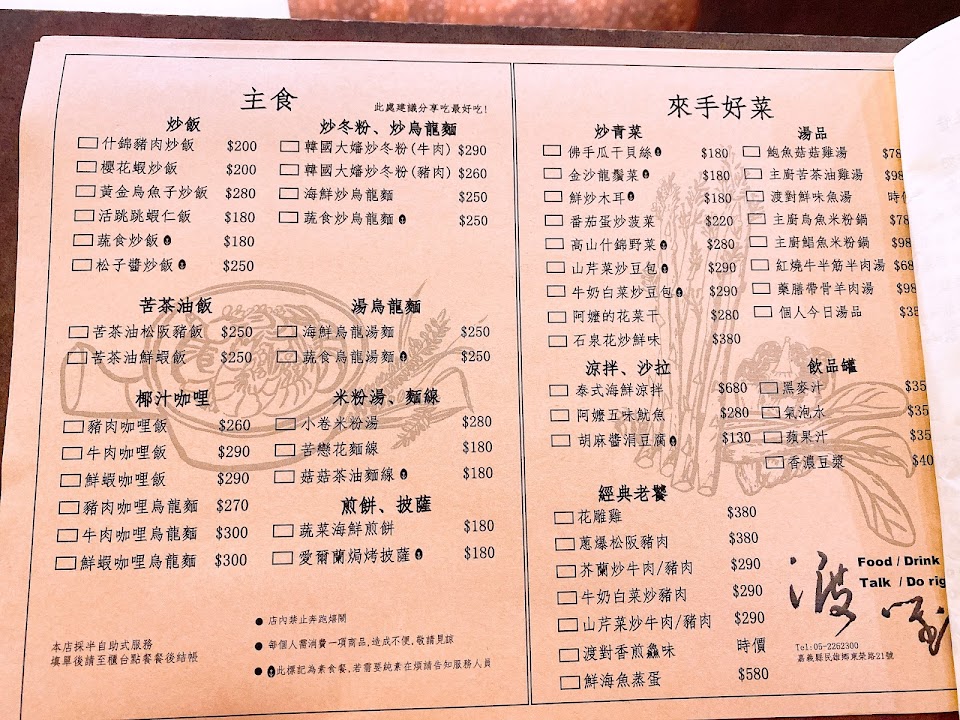 主食
此處建議分享吃最好吃!
炒飯
什錦豬肉炒飯 $200
櫻花蝦炒飯 $200
黃金烏魚子炒飯 $280
活跳跳蝦仁飯 $180
蔬食炒飯 $180
松子醬炒飯 $250
炒冬粉、炒烏龍麵
韓國大嬸炒冬粉(牛肉) $290
韓國大嬸炒冬粉(豬肉) $260
海鮮炒烏龍麵 $250
蔬食炒烏龍麵 $250
苦茶油飯
苦茶油松阪豬飯 $250
苦茶油鮮蝦飯 $250
湯烏龍麵
海鮮烏龍湯麵 $250
蔬食烏龍湯麵 $250
椰汁咖哩
豬肉咖哩飯 $260
牛肉咖哩飯 $290
鮮蝦咖哩飯 $290
豬肉咖哩烏龍麵 $270
牛肉咖哩烏龍麵 $300
鮮蝦咖哩烏龍麵 $300
米粉湯、麵線
小卷米粉湯 $280
苦戀花麵線 $180
菇菇茶油麵線 $180
煎餅、披薩
蔬菜海鮮煎餅 $180
愛爾蘭焗烤披薩 $180
本店採半自助式服務
填單後請至櫃台點餐餐後結帳
● 店內禁止奔跑嬉鬧
● 每個人需消費一項商品,造成不便,敬請見諒
● 此標記為素食餐,若需要純素在煩請告知服務人員
來手好菜
炒青菜
佛手瓜干貝絲 $180
金沙龍鬚菜 $180
鮮炒木耳 $180
番茄蛋炒菠菜 $220
高山什錦野菜 $280
山芹菜炒豆包 $290
牛奶白菜炒豆包 $290
阿嬤的花菜干 $280
石泉花炒鮮味 $380
湯品
鮑魚菇菇雞湯 $78
主廚苦茶油雞湯 $98
渡對鮮味魚湯 時
主廚烏魚米粉鍋 $78
主廚鯧魚米粉鍋 $98
紅燒牛半筋半肉湯 $68
藥膳帶骨羊肉湯 $98
個人今日湯品 $35
涼拌、沙拉
泰式海鮮涼拌 $680
阿嬤五味魷魚 $280
胡麻醬涓豆腐 $130
飲品罐
黑麥汁 $35
氣泡水 $35
蘋果汁 $35
香濃豆漿 $40
經典老饕
花雕雞 $380
蔥爆松阪豬肉 $380
芥蘭炒牛肉/豬肉 $290
牛奶白菜炒豬肉 $290
山芹菜炒牛肉/豬肉 $290
渡對香煎鱻味 時價
鮮海魚蒸蛋 $580
Food / Drink
Talk / Do rig
渡
Tel:05-2262300
嘉義縣民雄鄉東榮路21號